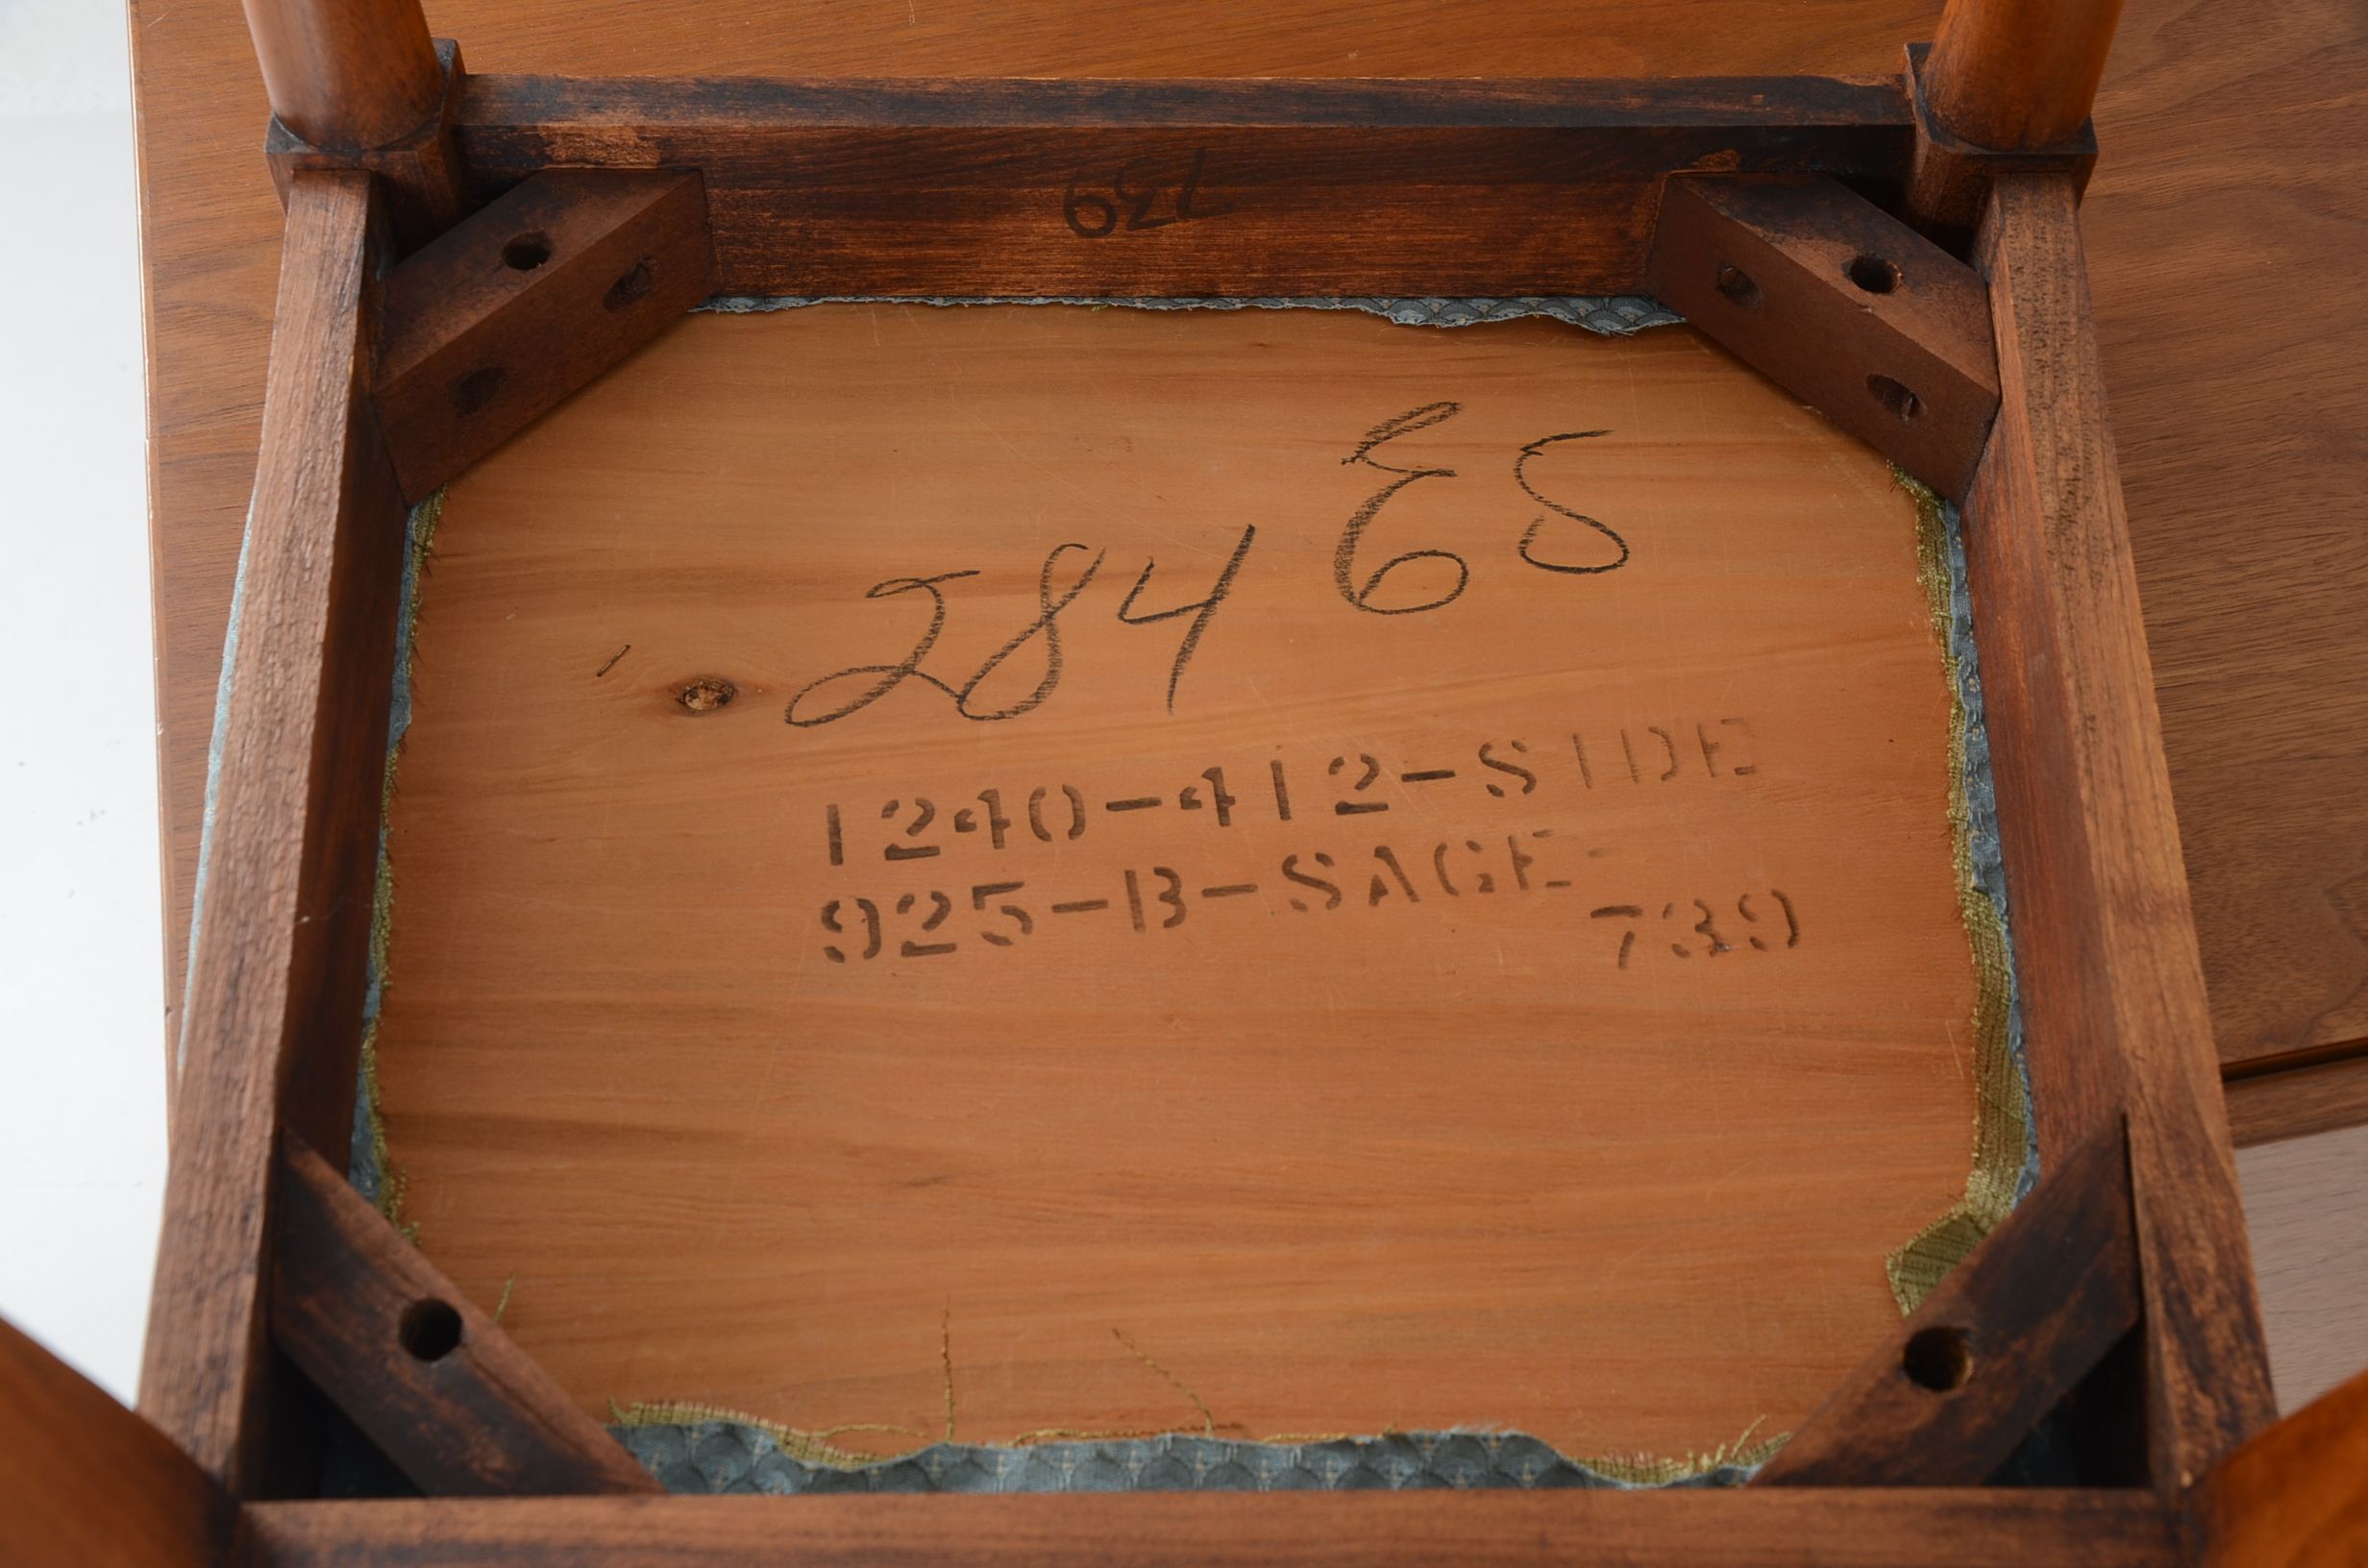 739
ES
284
1240-412-SIDE
925-B-SAGE
739